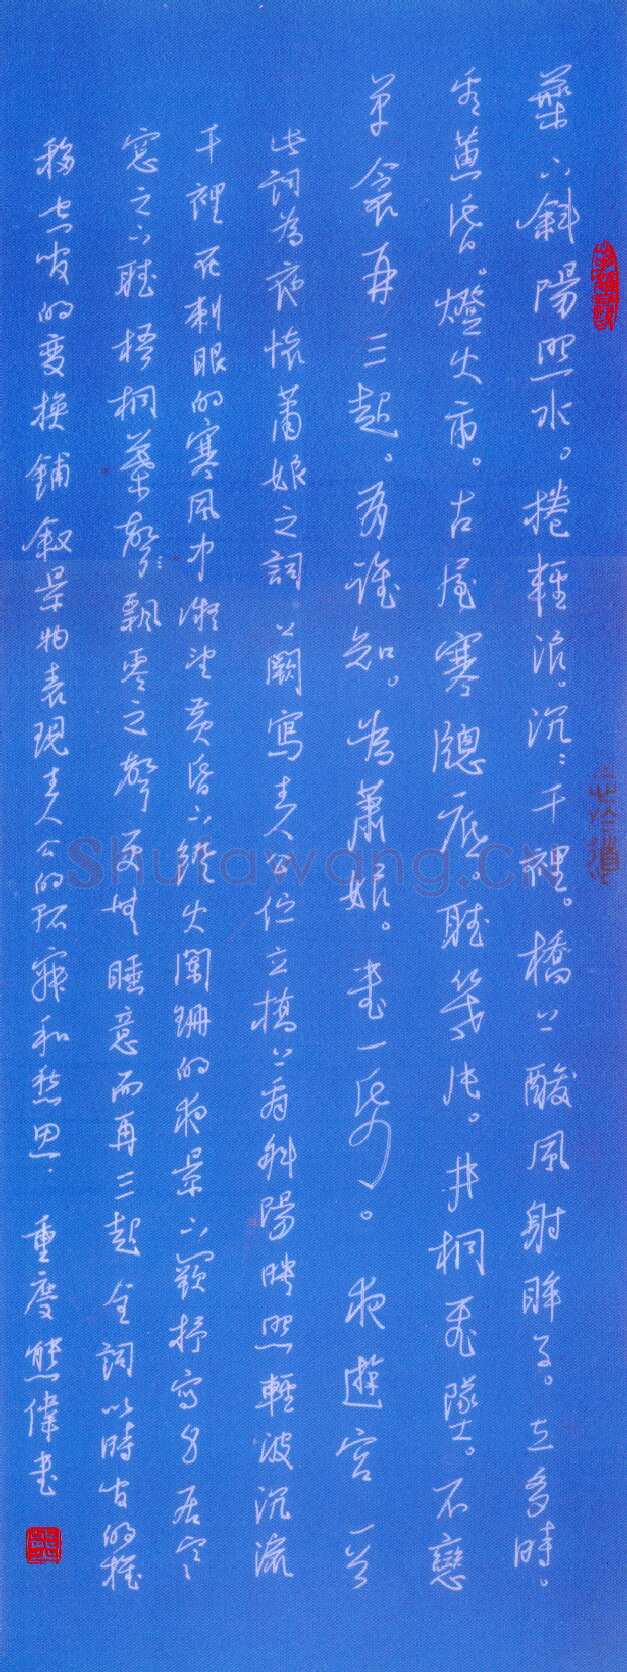 葉下斜陽照水。捲輕浪。沉沉千裡。橋上酸風射眸子。立多時。
看黃昏。燈火市。古屋寒窗底。聽幾片。井桐飛墜。不戀
單衾再三起。有誰知。為蕭娘。書一紙。 夜遊宮一首
此詞為夜懷蕭娘之詞上闋寫主人公佇立橋上看斜陽映照輕波沉流
千裡在刺眼的寒風中凝望黃昏下燈火闌珊的夜景下闋抒寫身居寒
窗之下聽梧桐葉聲聲飄零之聲更無睡意而再三起全詞以時間的推
移空間的變換鋪敘景物表現主人公的孤寂和愁思. 重慶熊偉書
Shufawang.cn